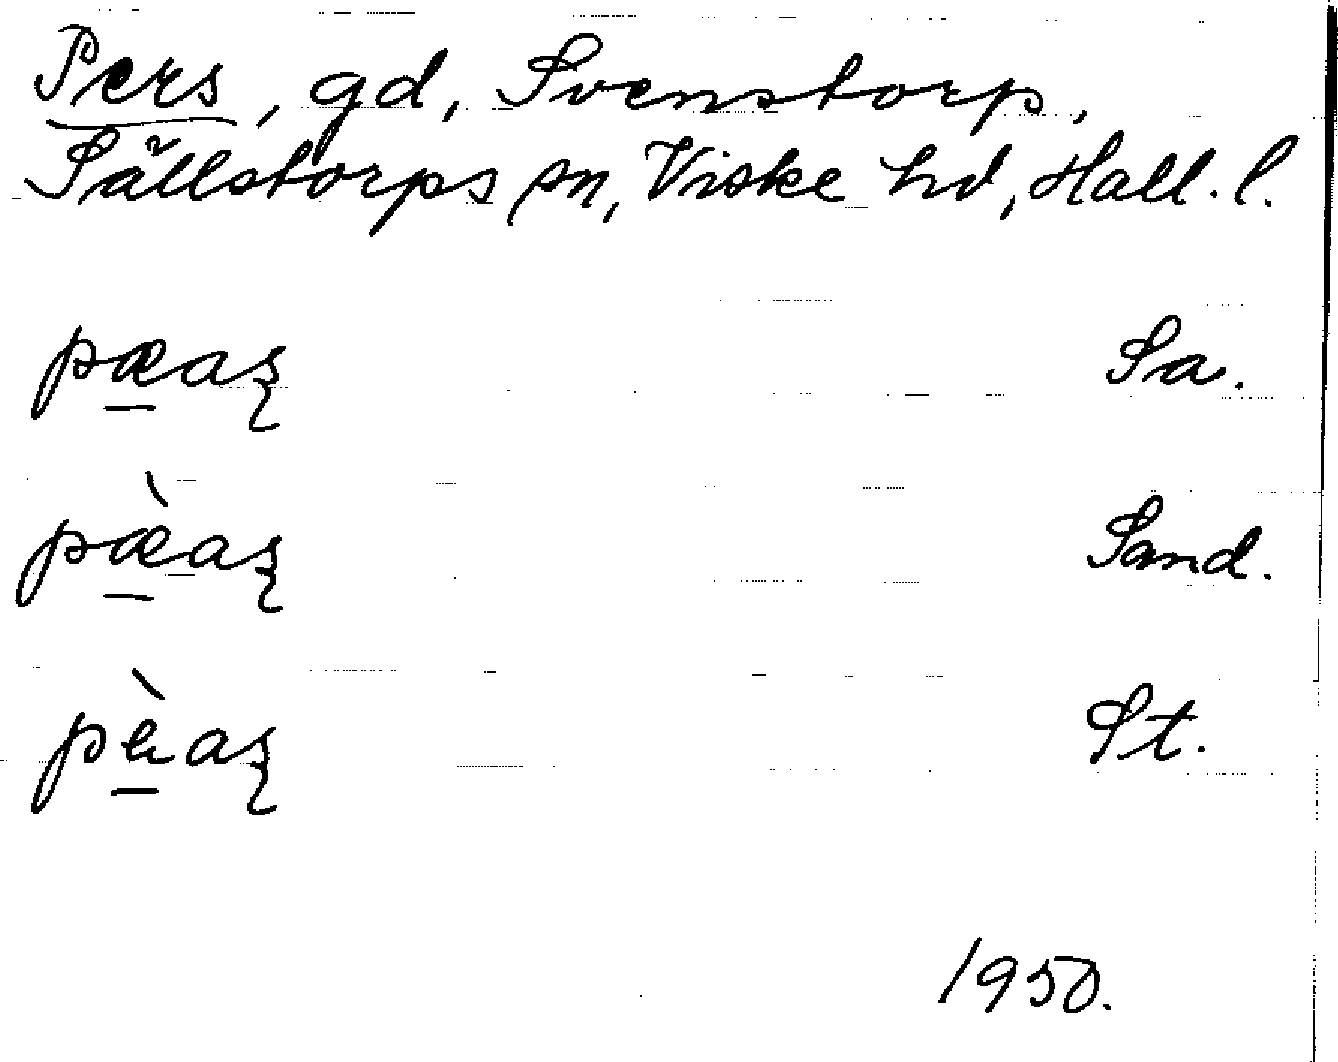 Pers, gd, Svenstorp,
Sällstorps sn, Viske hd, Hall. l.
pæ̱aʂ Sa.
pæ̱̀aʂ Sand.
pè̱aʂ St.
1950.